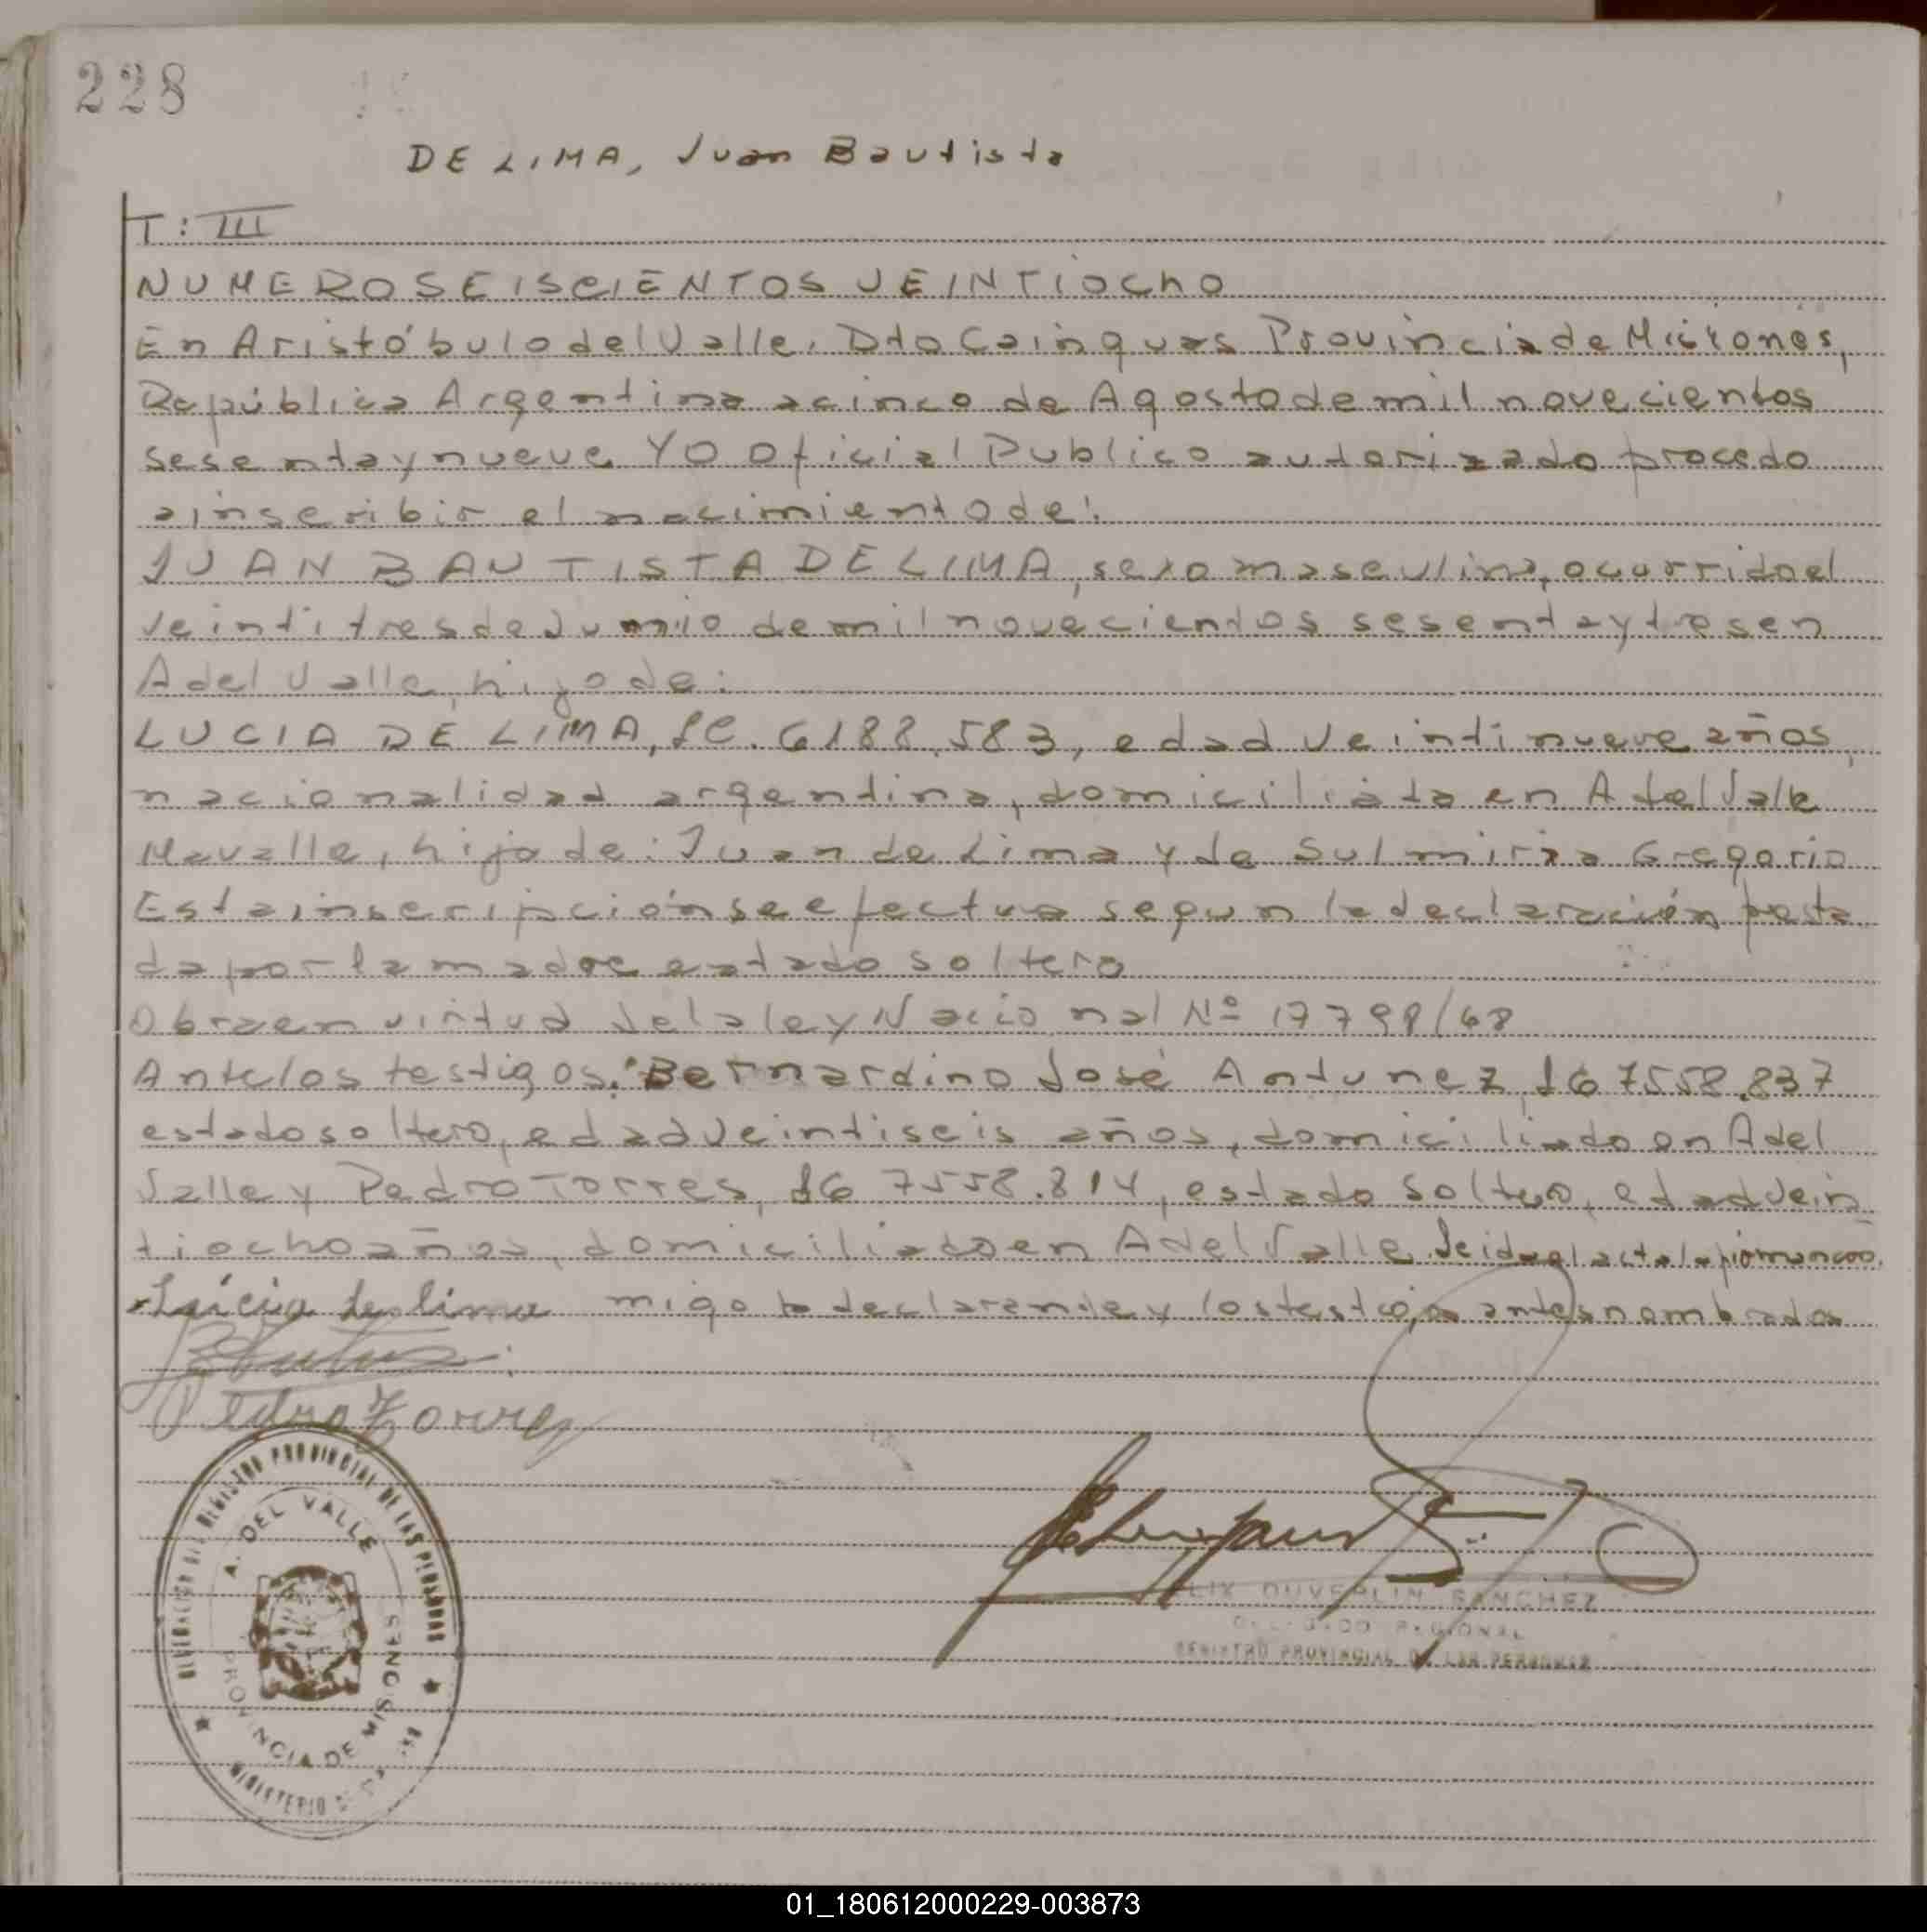 228
DE LIMA, Juan Bautista
T: III
NUMERO SEISCIENTOS VEINTIOCHO
En Aristóbulo del Valle, Dto Cainguas Provincia de Misiones,
República Argentina a cinco de Agosto de mil novecientos
sesenta y nueve YO Oficial Publico autorizado procedo
a inscribir el nacimiento de:
JUAN BAUTISTA DE LIMA, sexo masculino, ocurrido el
veintitres de Junio de mil novecientos sesenta y tres en
A del Valle, hijo de:
LUCIA DE LIMA, LC. 6188.583, edad veintinueve años,
nacionalidad argentina, domiciliada en A del Valle
hija de: Juan de Lima y de Sulmiria Gregorio
Esta inscripción se efectua segun la declaración presta
da por la madre estado soltero
Obra en virtud de la ley Nacional Nº 17798/68
Ante los testigos: Bernardino José Antunez, 7558.837
estado soltero, edad veintiseis años, domiciliado en A del
Valle y Pedro Torres, 7558.814, estado soltero, edad vein
tiocho años, domiciliado en A del Valle. Leida el acta la
migo la declarante y los testigos antes nombrados
Lucia de lima
Pedro Torres
DELEGACION DEL REGISTRO PROVINCIAL DE LAS PERSONAS
A. DEL VALLE
PROVINCIA DE MISIONES
MINISTERIO DE
FELIX DUVERLIN SANCHEZ
DELEGADO REGIONAL
REGISTRO PROVINCIAL DE LAS PERSONAS
01_180612000229-003873